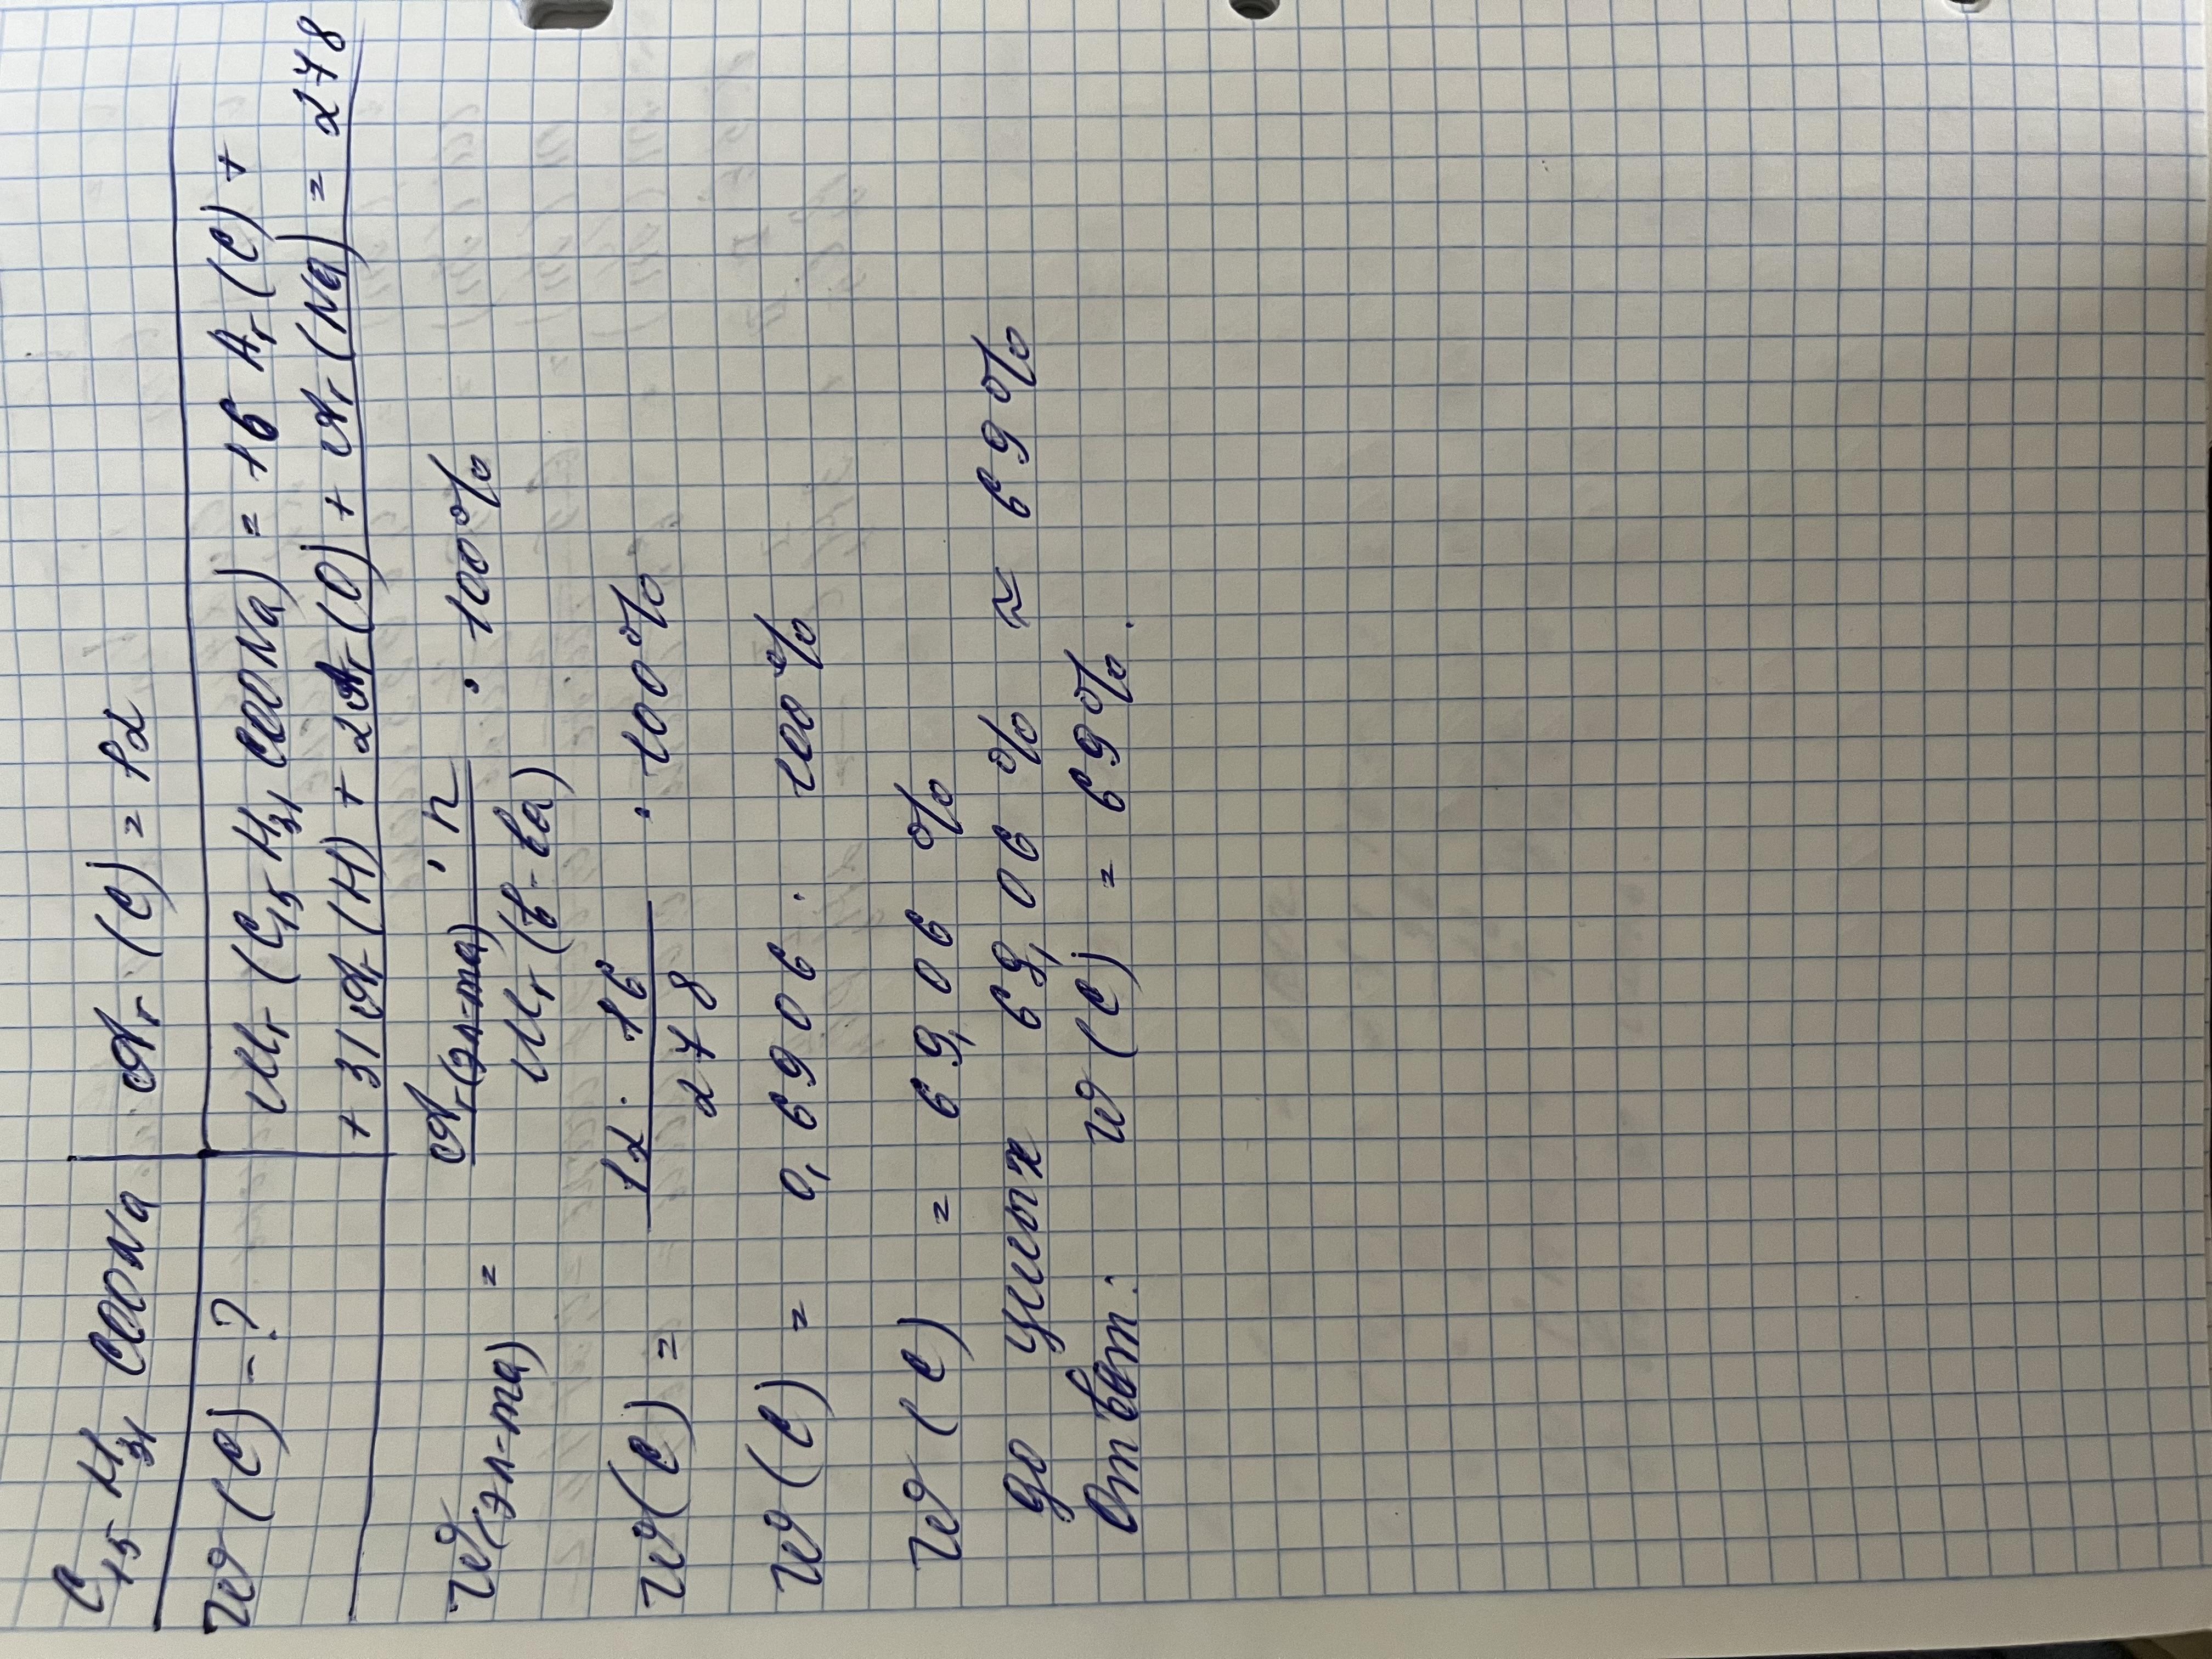 C₁₅H₃₁COONa Ar(C) = 12
W(C) - ? Mr(C₁₅H₃₁COONa) = 16 Ar(C) +
+ 31Ar(H) + 2Ar(O) + Ar(Na) = 278
W(эл-та) = Ar(эл-та) · n / Mr(в-ва) · 100%
W(C) = 12 · 16 / 278 · 100%
W(C) = 0,6906 · 100%
W(C) = 69,06 %
до целых 69,06 % ≈ 69%
Ответ: W(C) = 69%.